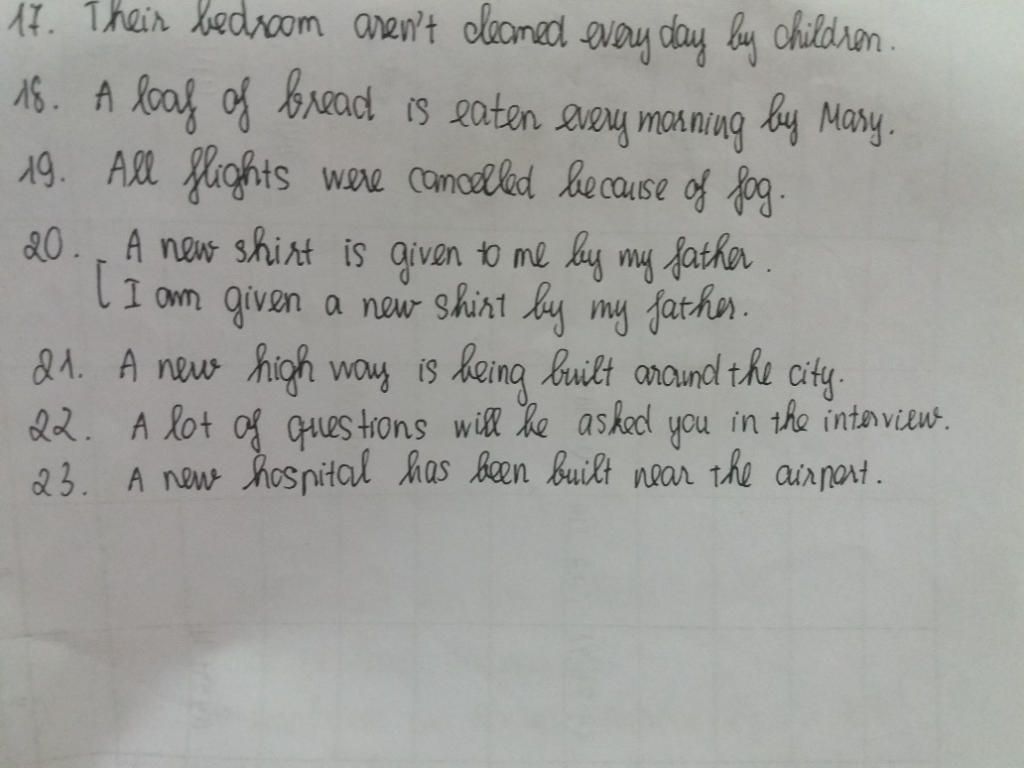 17. Their bedroom aren't cleaned every day by children.
18. A loaf of bread is eaten every morning by Mary.
19. All flights were cancelled because of fog.
20. A new shirt is given to me by my father.
[ I am given a new shirt by my father.
21. A new high way is being built around the city.
22. A lot of questions will be asked you in the interview.
23. A new hospital has been built near the airport.